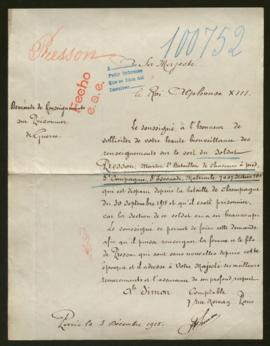 Presson
100752
A Sa Majesté
le Roi Alphonse XIII.
Hecho
Demande de Renseignements
sur Prisonnier
de Guerre.
Le soussigné, a l'honneur de
solliciter de votre haute bienveillance des
renseignements sur le sort du soldat
Presson,
Bataillon de Chasseurs à pied,
Compagnie, Escouade, Matricule
qui est disparu depuis la bataille de Champagne
du 30 Septembre 1915 et qu'il croit prisonnier,
car la section de ce soldat en a eu beaucoup.
Le soussigné se permet de faire cette demande
afin qu'il puisse renseigner la femme et le fils
de Presson qui sont sans nouvelles depuis cette
époque et il adresse à Votre Majesté ses meilleurs
remerciements et l'assurance de son profond respect.
Simon
Comptable
7 rue Paris
Paris le 3 Décembre 1915.